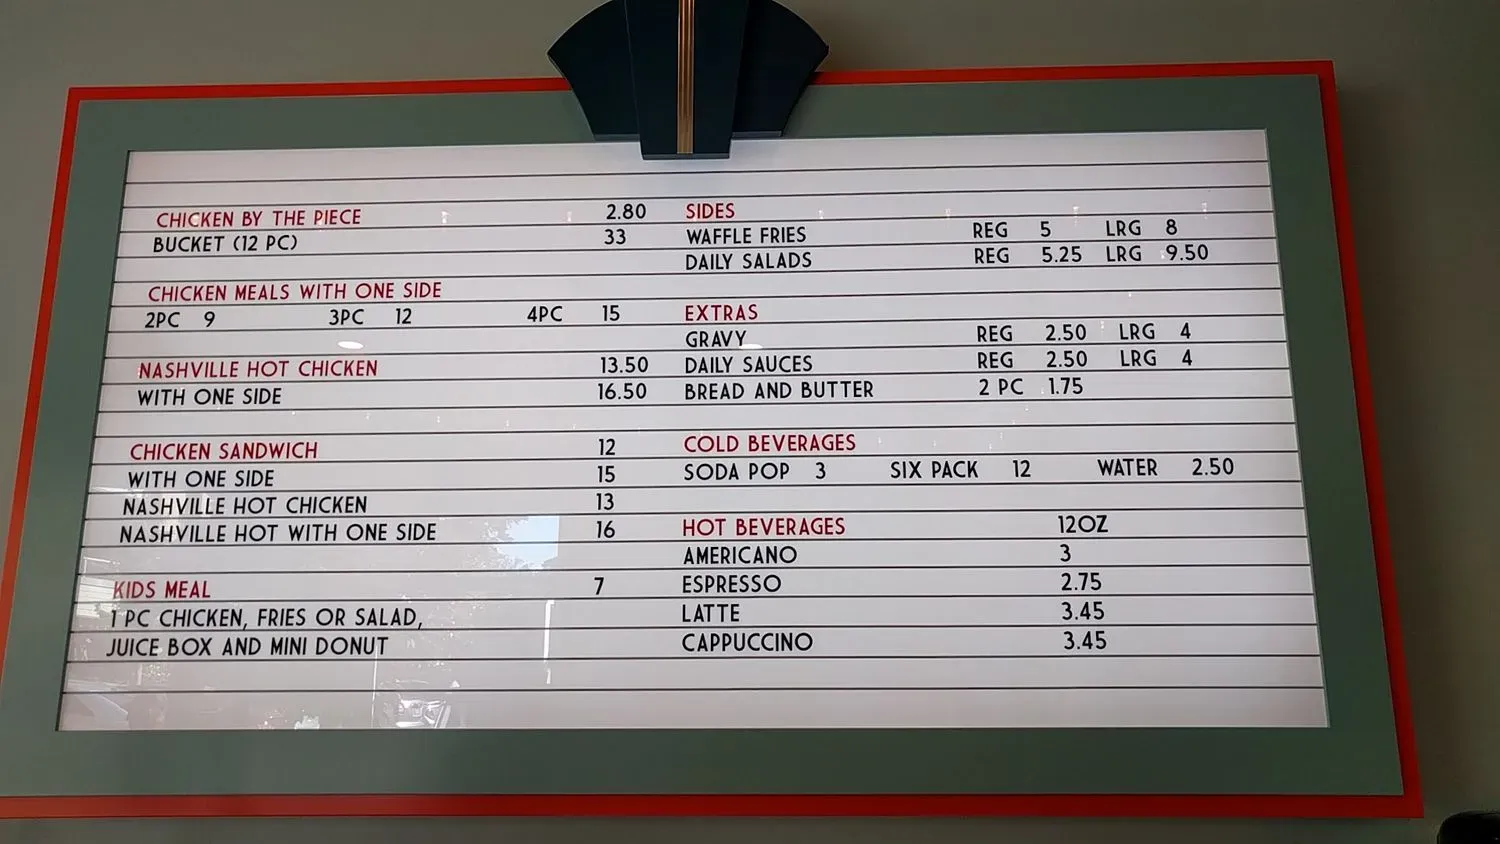 CHICKEN BY THE PIECE 2.80
BUCKET (12 PC) 33
CHICKEN MEALS WITH ONE SIDE
2PC 9 3PC 12 4PC 15
NASHVILLE HOT CHICKEN 13.50
WITH ONE SIDE 16.50
CHICKEN SANDWICH 12
WITH ONE SIDE 15
NASHVILLE HOT CHICKEN 13
NASHVILLE HOT WITH ONE SIDE 16
KIDS MEAL 7
1 PC CHICKEN, FRIES OR SALAD,
JUICE BOX AND MINI DONUT
SIDES
WAFFLE FRIES REG 5 LRG 8
DAILY SALADS REG 5.25 LRG 9.50
EXTRAS
GRAVY REG 2.50 LRG 4
DAILY SAUCES REG 2.50 LRG 4
BREAD AND BUTTER 2 PC 1.75
COLD BEVERAGES
SODA POP 3 SIX PACK 12 WATER 2.50
HOT BEVERAGES 12OZ
AMERICANO 3
ESPRESSO 2.75
LATTE 3.45
CAPPUCCINO 3.45